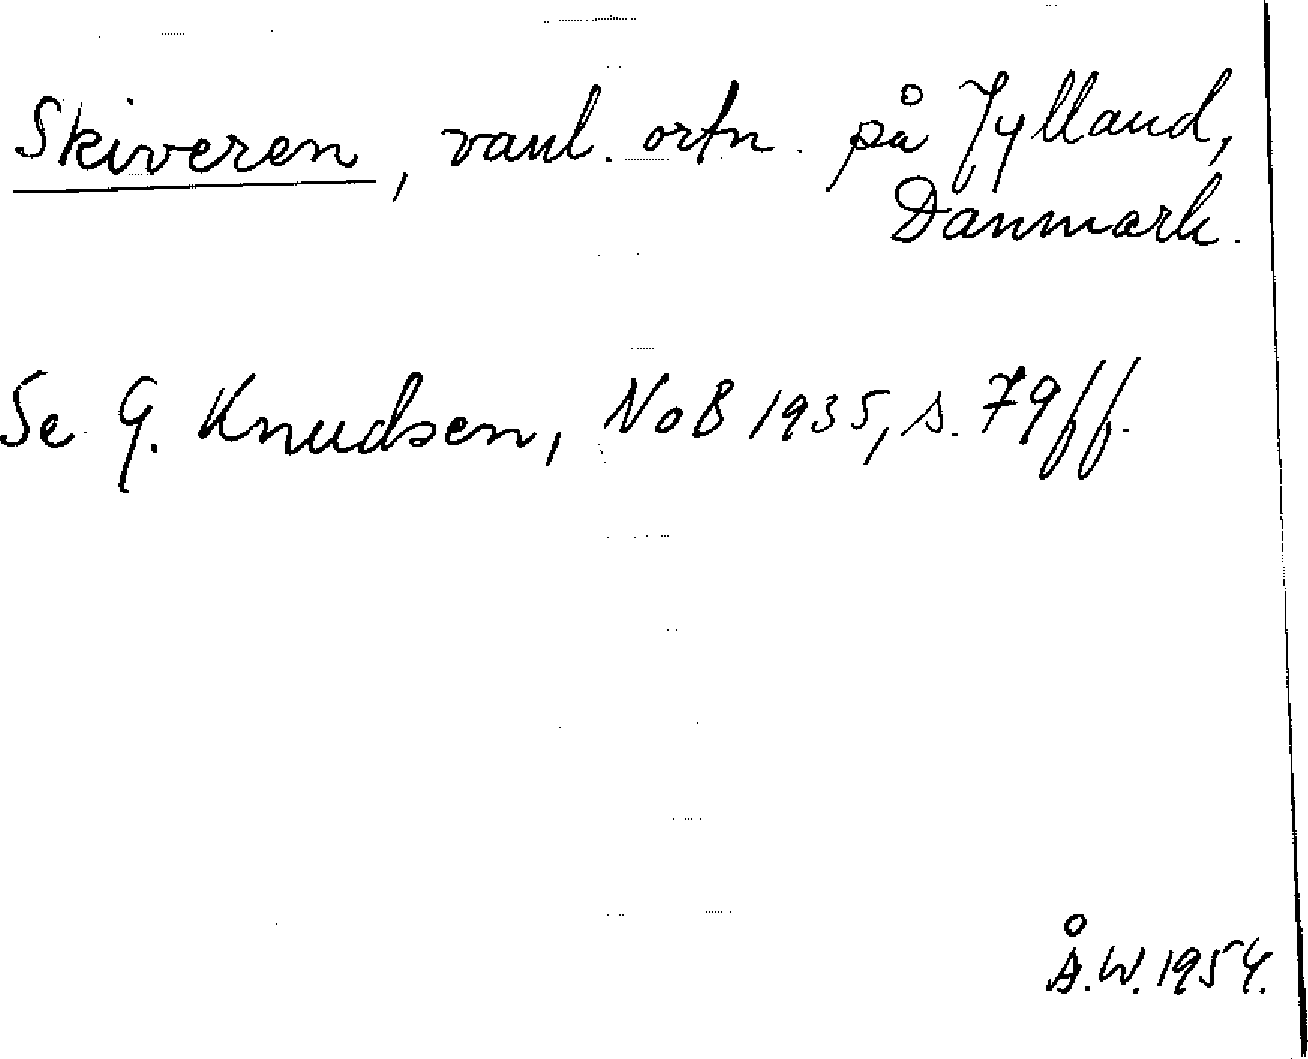 Skiveren, vanl. ortn. på Jylland,
Danmark.
Se G. Knudsen, NoB 1935, s. 79ff.
Å.W. 1954.